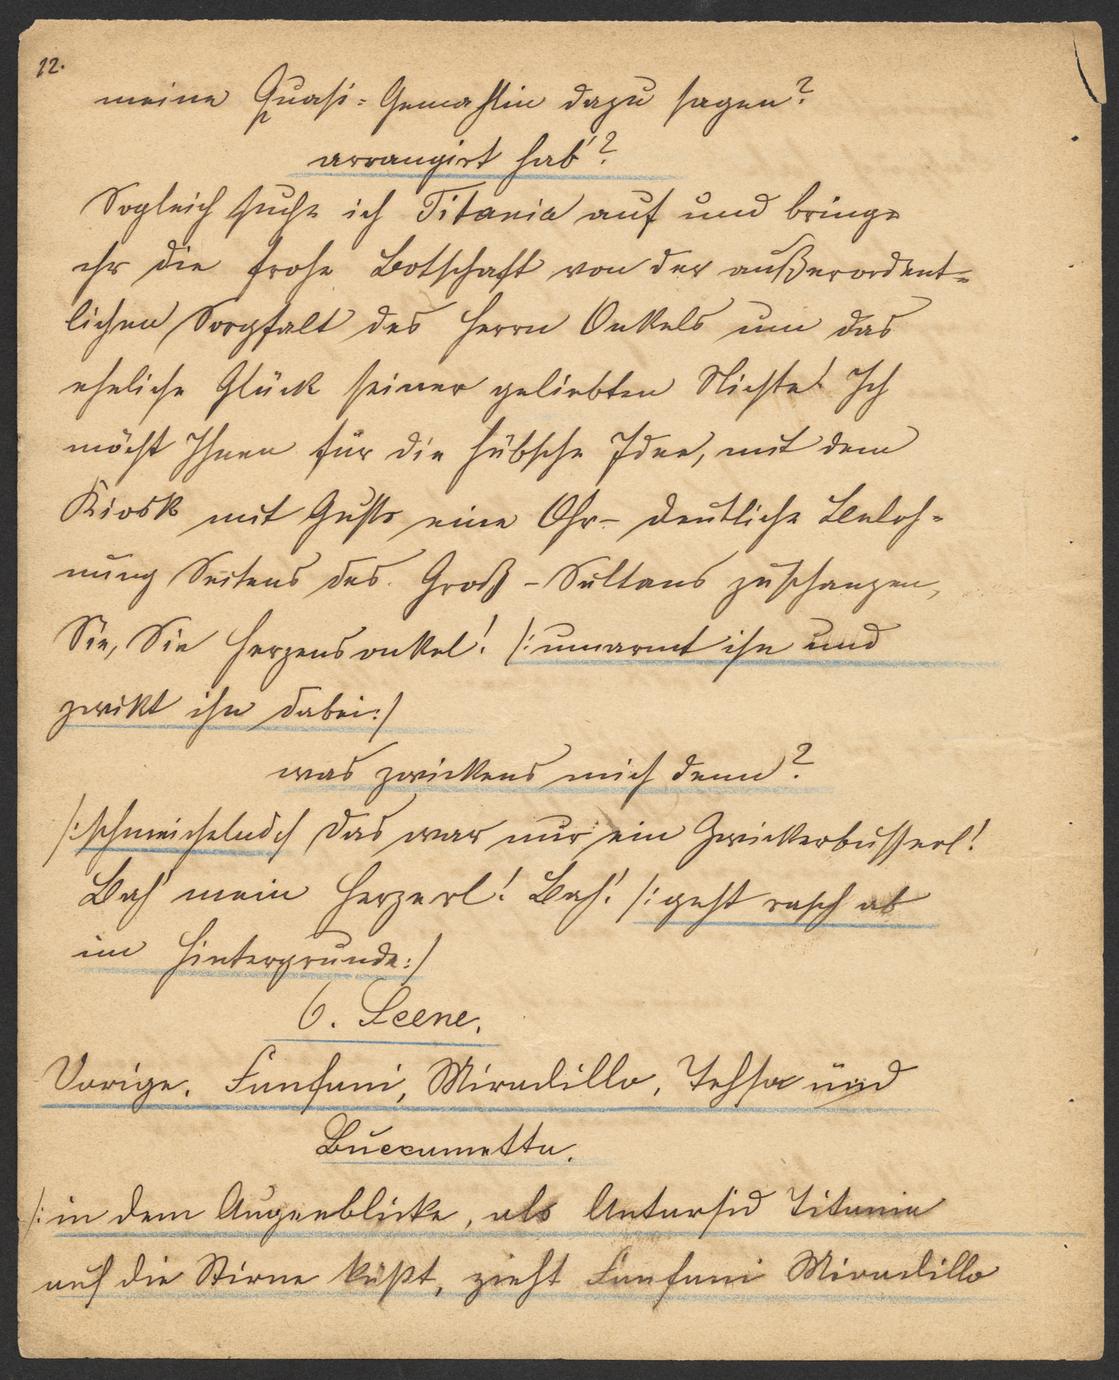 12.
meine Quasi-Gemahlin dazu sagen?
arrangirt hab'?
Sogleich suche ich Titania auf und bringe
ihr die frohe Botschaft von der außerordent-
lichen Sorgfalt des Herrn Onkels um das
eheliche Glück seiner geliebten Nichte! Ich
möcht Ihnen für die hübsche Idee, mit dem
Kiosk mit Gusto eine Ohr- deutliche Beloh-
nung Seitens des Groß-Sultans zuschanzen,
Sie, Sie Herzensonkel! /: umarmt ihn und
zwikt ihn dabei :/
was zwickens mich denn?
/: schmeichelnd :/ das war nur ein Zwickerbusserl!
Bah' mein Herzerl! Bah! /: geht rasch ab
im Hintergrunde :/
6. Scene.
Vorige. Fanfani, Miradillo, Tessa und
Buccametta.
/: in dem Augenblicke, als Antarsid Titania
auf die Stirne küßt, zieht Fanfani Miradillo